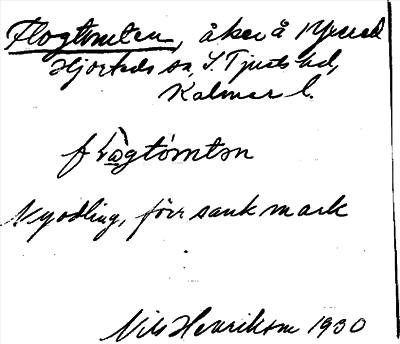 Flogtomten, åker å
Hjorteds sn, S. Tjusts hd,
Kalmar l.
Nyodling, förr sank mark
Nils Henriksson 1930